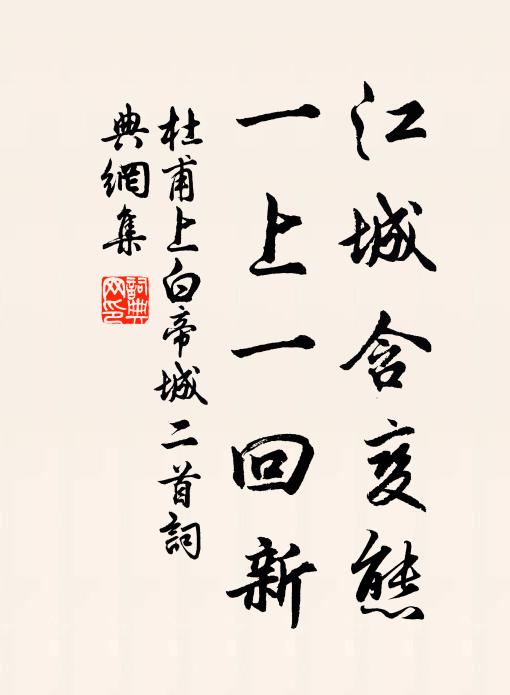 江城含变態
一上一回新
杜甫上白帝城二首詞
典網集
詞典
网印